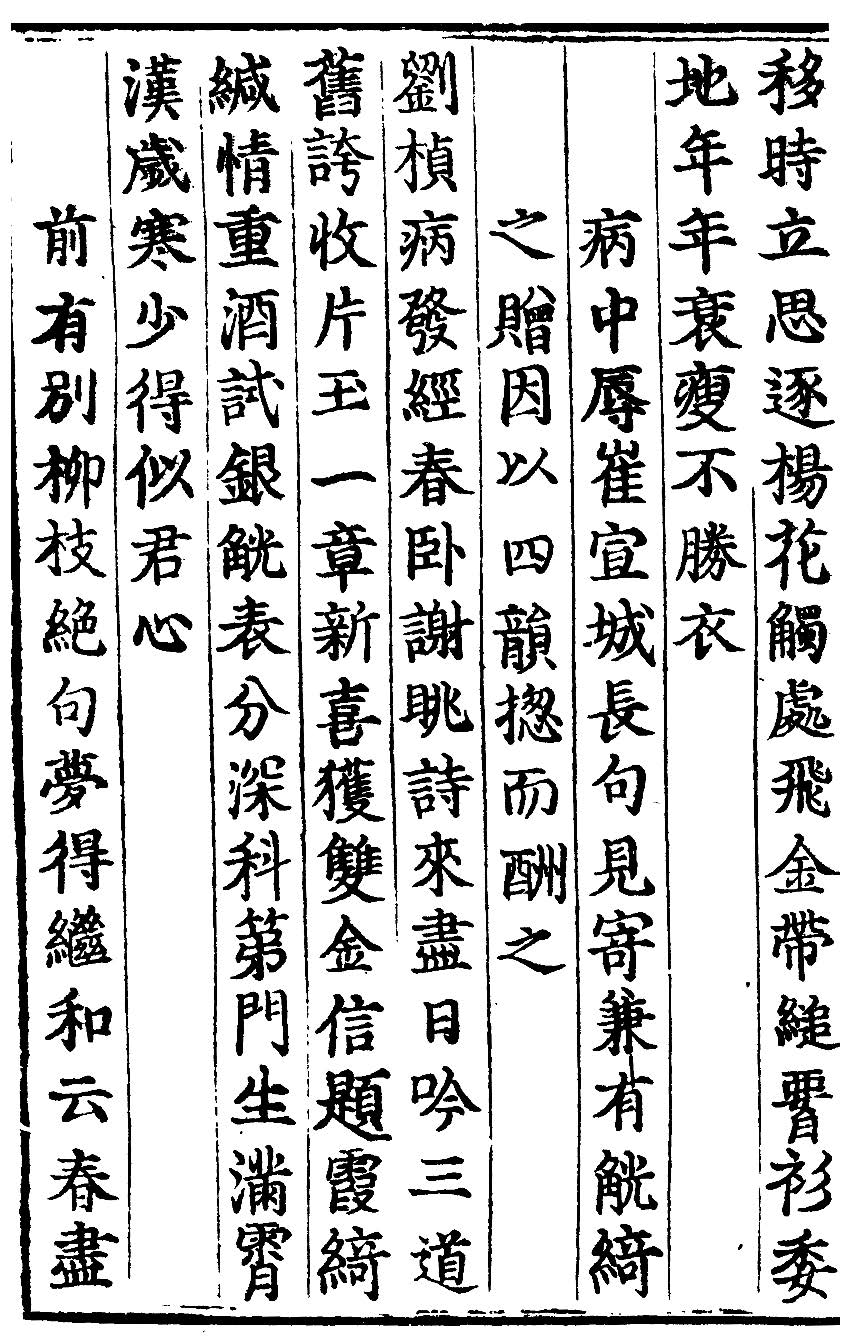 移時立思逐楊花觸處飛金帶縋𦝫衫委
地年年衰瘦不勝衣
病中辱崔宣城長句見寄兼有觥綺
之贈因以四韻揔而酬之
劉楨病發經春卧謝眺詩來盡日吟三道
舊誇收片玉一章新喜獲雙金信題霞綺
緘情重酒試銀觥表分深科第門生滿霄
漢歲寒少得似君心
前有别柳枝絶句夢得繼和云春盡